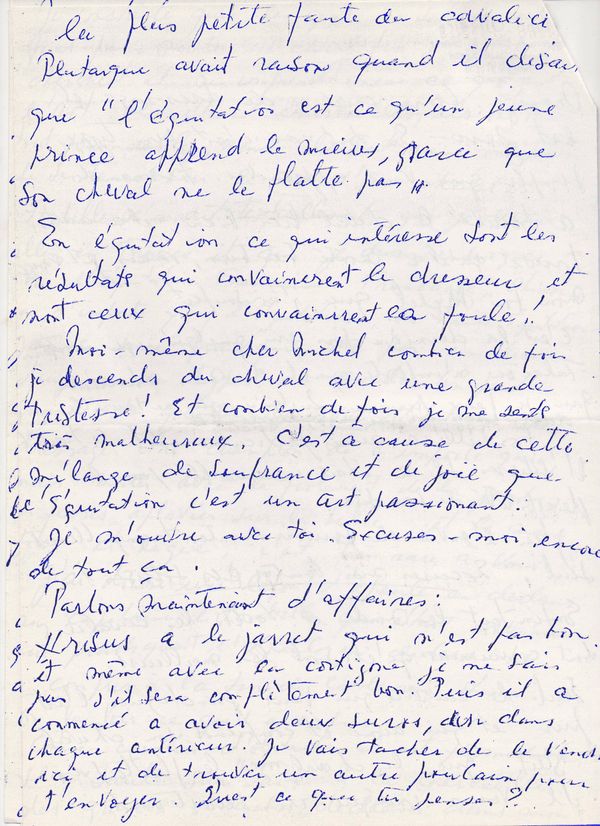 la plus petite faute du cavalier
Plutarque avait raison quand il disai
que "l'Equitation est ce qu'un jeune
prince apprend le mieux, parce que
son cheval ne le flatte pas".
En équitation ce qui intéresse sont les
résultats qui convainerent le dresseur et
nont ceux qui convainerent la foule!
Moi-même cher Michel combien de fois
je descends du cheval avec une grande
tristesse! Et combien de fois je me sents
très malheureux. C'est à cause de cette
mélange de soufrance et de joie que
l'Equitation c'est un art passionant.
Je m'ouvre avec toi. Excuses-moi encore
de tout ça.
Parlons maintenant d'affaires:
a le jarret qui n'est pas bon.
et même avec la cortizone je ne sais
pas s'il sera complètement bon. Puis il a
commencé a avoir deux suros, dans
chaque antérieur. Je vais tacher de le vendre
ici et de trouver un autre poulain pour
t'envoyer. Qu'est ce que tu penses?